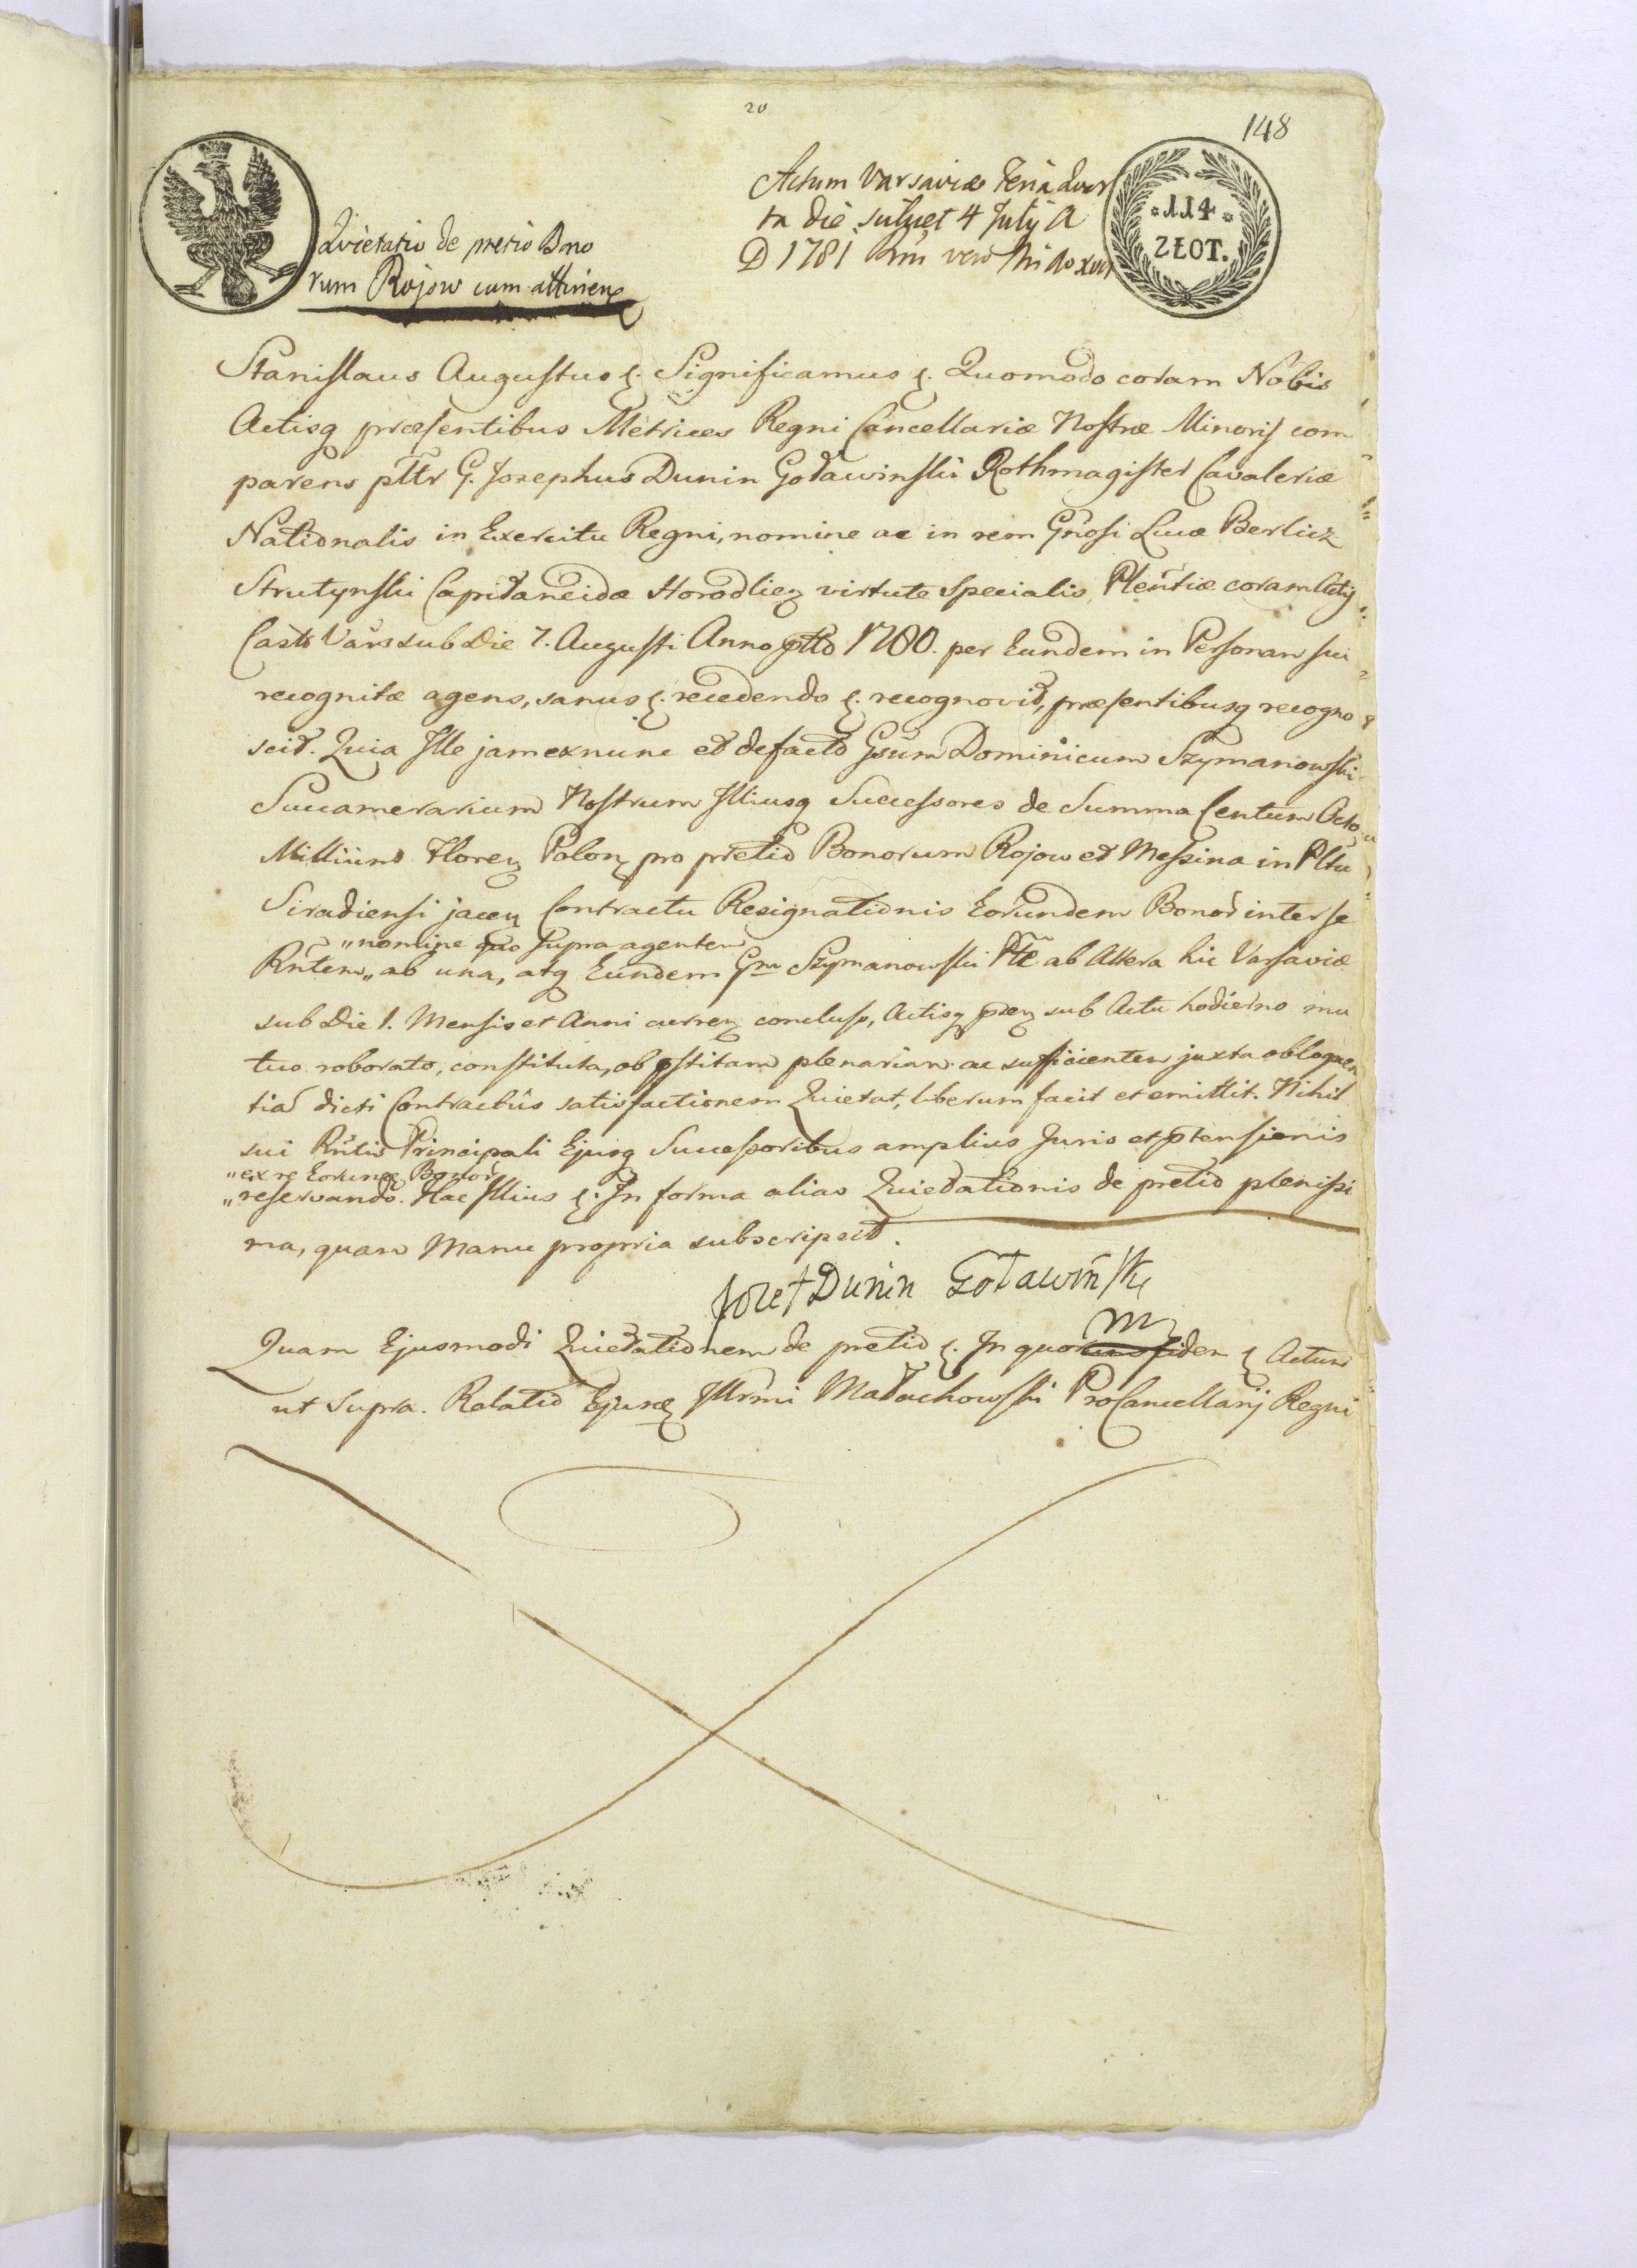 20
148
Quietatio de pretio Bno
rum Rojow cum attinen
Actum Varsaviæ Feria
ta die sciliet 4 July A
D 1781 vero
*114*
ZŁOT.
Stanislaus Augustus &. Significamus &. Quomodo coram Nobis
Actisq præsentibus Metrices Regni Cancellariæ Nostræ Minoris com
parens pltr G. Josephus Dunin Goławinski Rothmagister Cavaleriæ
Nationalis in Exercitu Regni, nomine ac in rem Gnosi Lucæ Berlicz
Strutynski Capitaneidæ Horodlien virtute specialis Plentiæ coram Actis
Cast Vars sub Die 7. Augusti Anno ptto 1780. per Eundem in Personam sui
recognitæ agens, sanus &. recedendo &. recognovit, præsentibusq recogno
scit. Quia Ille jam ex nunc et de facto Gsum Dominicum Szymanowski
Succamerarium Nostrum Illiusq Successores de Summa Centum Octo
Millium Floren Polon pro pretio Bonorum Rojow et Messina in Pltu
Siradiensi jacen Contractu Resignationis Eorundem Bonor inter se
"nomine quo supra agentem
Rntem" ab una, atq Eundem Gm Szymanowski Pte ab Altera hic Varsaviæ
sub Die 1. Mensis et Anni curren concluso, Actisq pten sub Actu hodierno mu
tuo roborato, constituta, ob pstitam plenariam ac sufficientem juxta obloquen
tiam dicti Contractûs satisfactionem Quietat, liberum facit et emittit. Nihil
sui Rntis Principali Ejusq Successoribus amplius Juris et ptensionis
"ex re Eorund Bonor
"reservando. Hac Illius &. In forma alias Quietationis de pretio plenissi
ma, quam Manu propria subscripsit.
Jozef Dunin Goławinsky
m
Quam Ejusmodi Quietationem de pretio &. In quorum fidem & Actum
ut supra. Relatio Ejusd Illrmi Małachowski ProCancellarij Regni